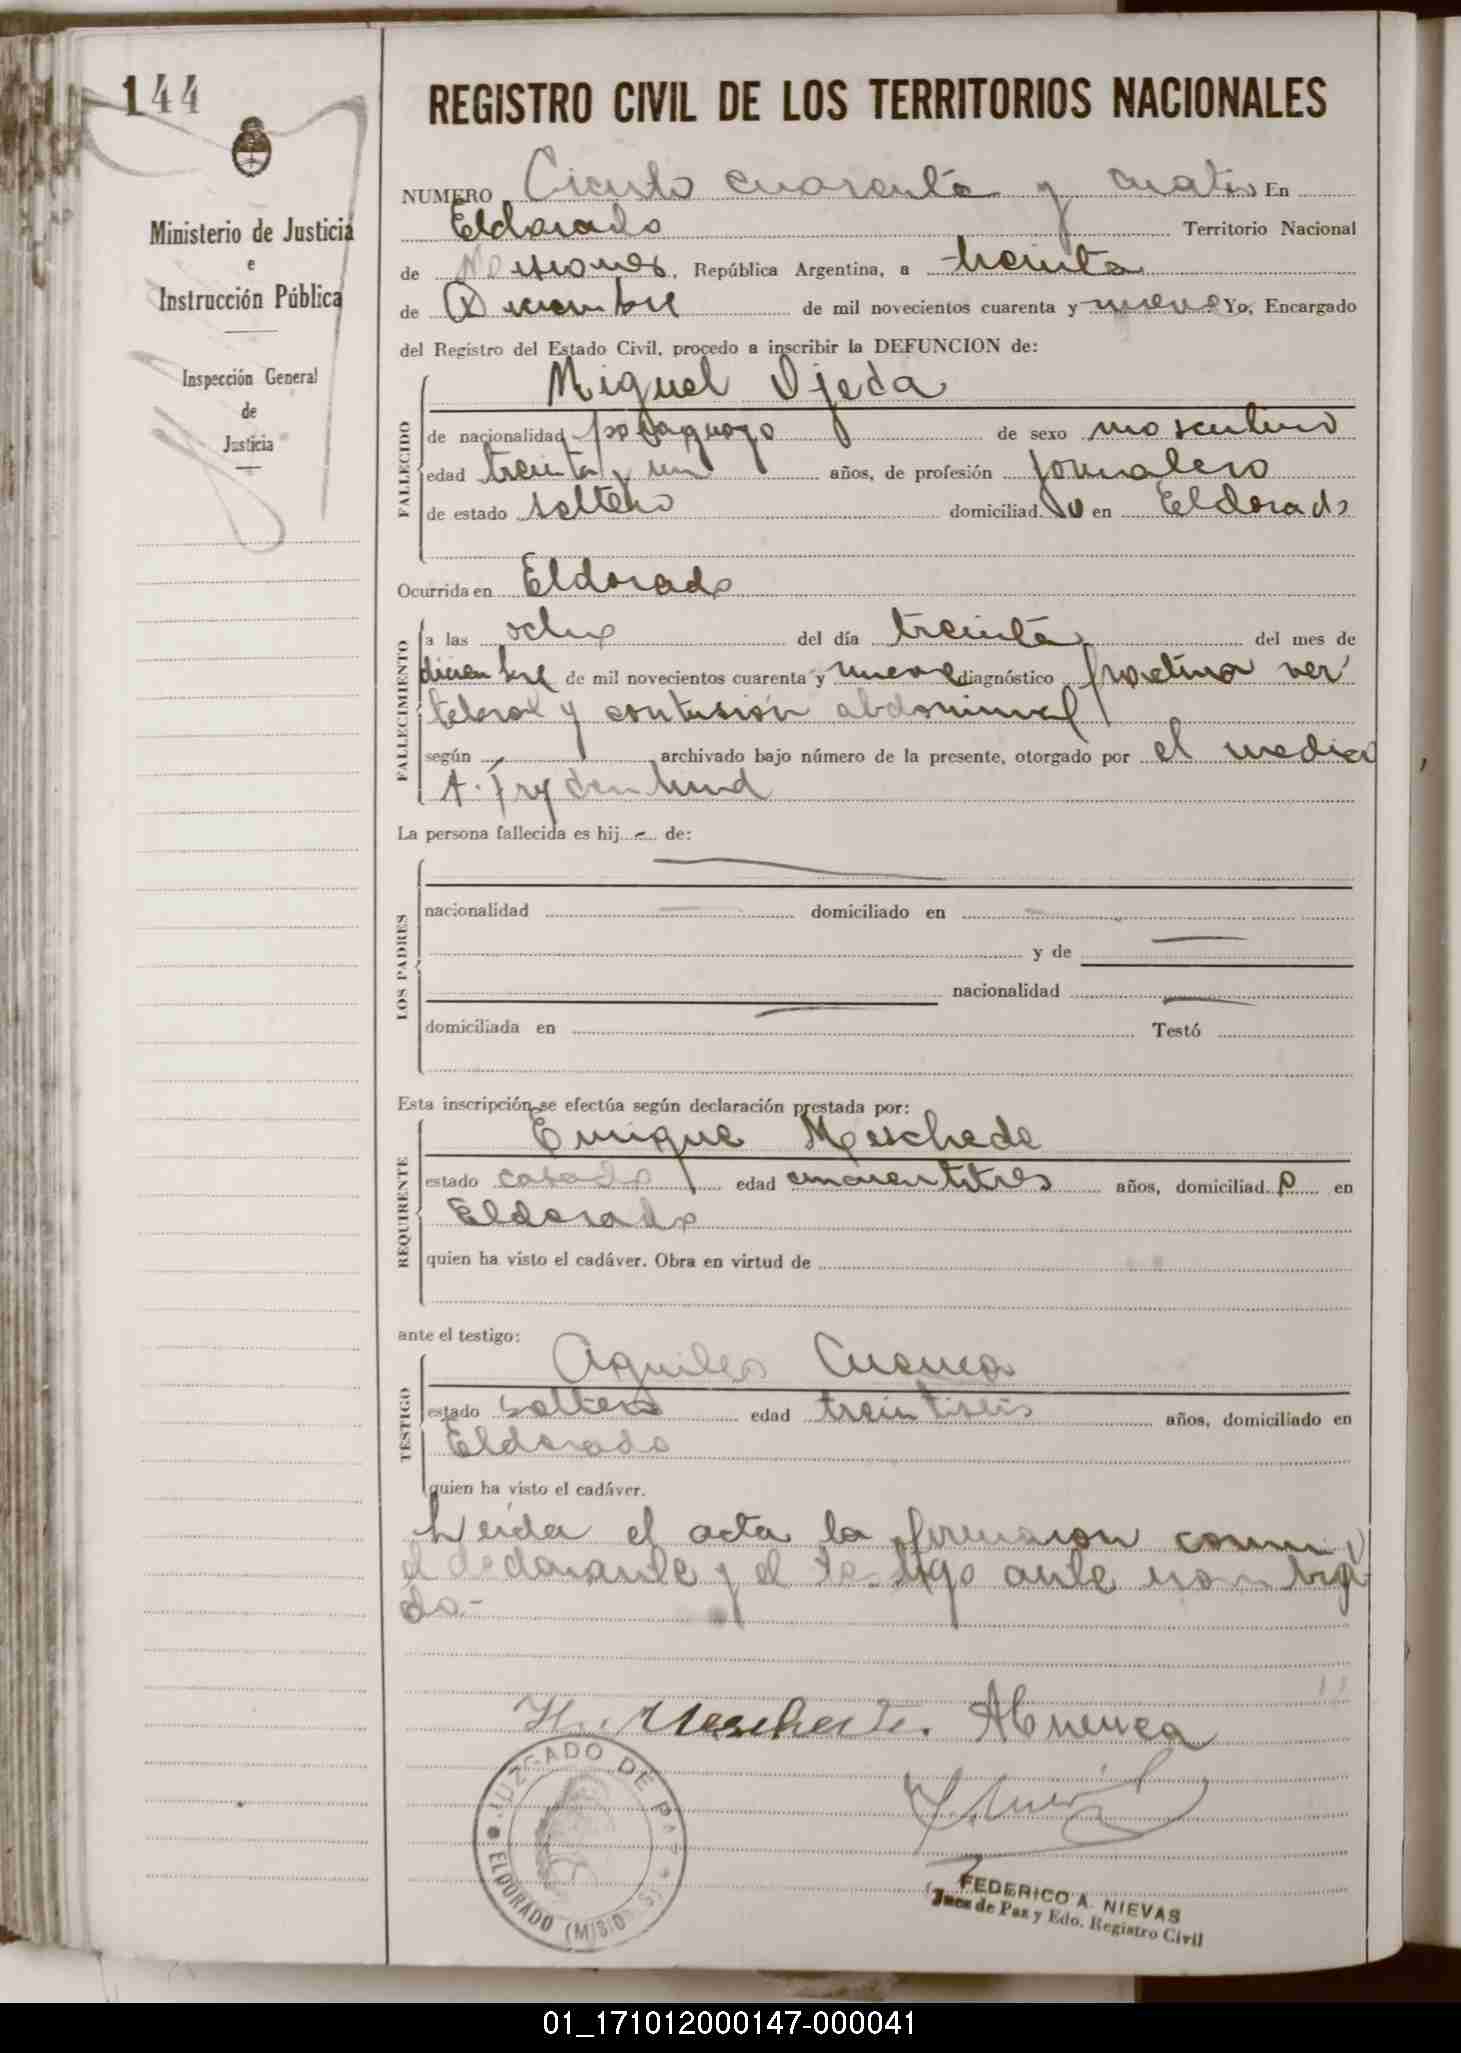 144
Ministerio de Justicia
e
Instrucción Pública
Inspección General
de
Justicia
REGISTRO CIVIL DE LOS TERRITORIOS NACIONALES
NUMERO Ciento cuarenta y cuatro En
Eldorado Territorio Nacional
de Misiones, República Argentina, a treinta
de Diciembre de mil novecientos cuarenta y nueve Yo, Encargado
del Registro del Estado Civil, procedo a inscribir la DEFUNCION de:
Miguel Ojeda
FALLECIDO
de nacionalidad paraguayo de sexo masculino
edad treinta y un años, de profesión jornalero
de estado soltero domiciliado en Eldorado
Ocurrida en Eldorado
FALLECIMIENTO
a las ocho del día treinta del mes de
diciembre de mil novecientos cuarenta y nueve diagnóstico fractura ver
tebral y contusión abdominal
según archivado bajo número de la presente, otorgado por el medico
A. Frydenlund
La persona fallecida es hij de:
LOS PADRES
nacionalidad domiciliado en
y de
nacionalidad
domiciliada en Testó
Esta inscripción se efectúa según declaración prestada por:
Enrique Meschede
REQUIRENTE
estado casado edad cuarentitres años, domiciliado en
Eldorado
quien ha visto el cadáver. Obra en virtud de
ante el testigo:
Aquiles Cuenca
TESTIGO
estado soltero edad treintiseis años, domiciliado en
Eldorado
quien ha visto el cadáver.
Leida el acta la firmaron conmi
el declarante y el testigo ante nombra
do.-
H. Meschede. ACuenca
JUZGADO DE PAZ
ELDORADO (MISIONES)
FEDERICO A. NIEVAS
Juez de Paz y Edo. Registro Civil
01_171012000147-000041